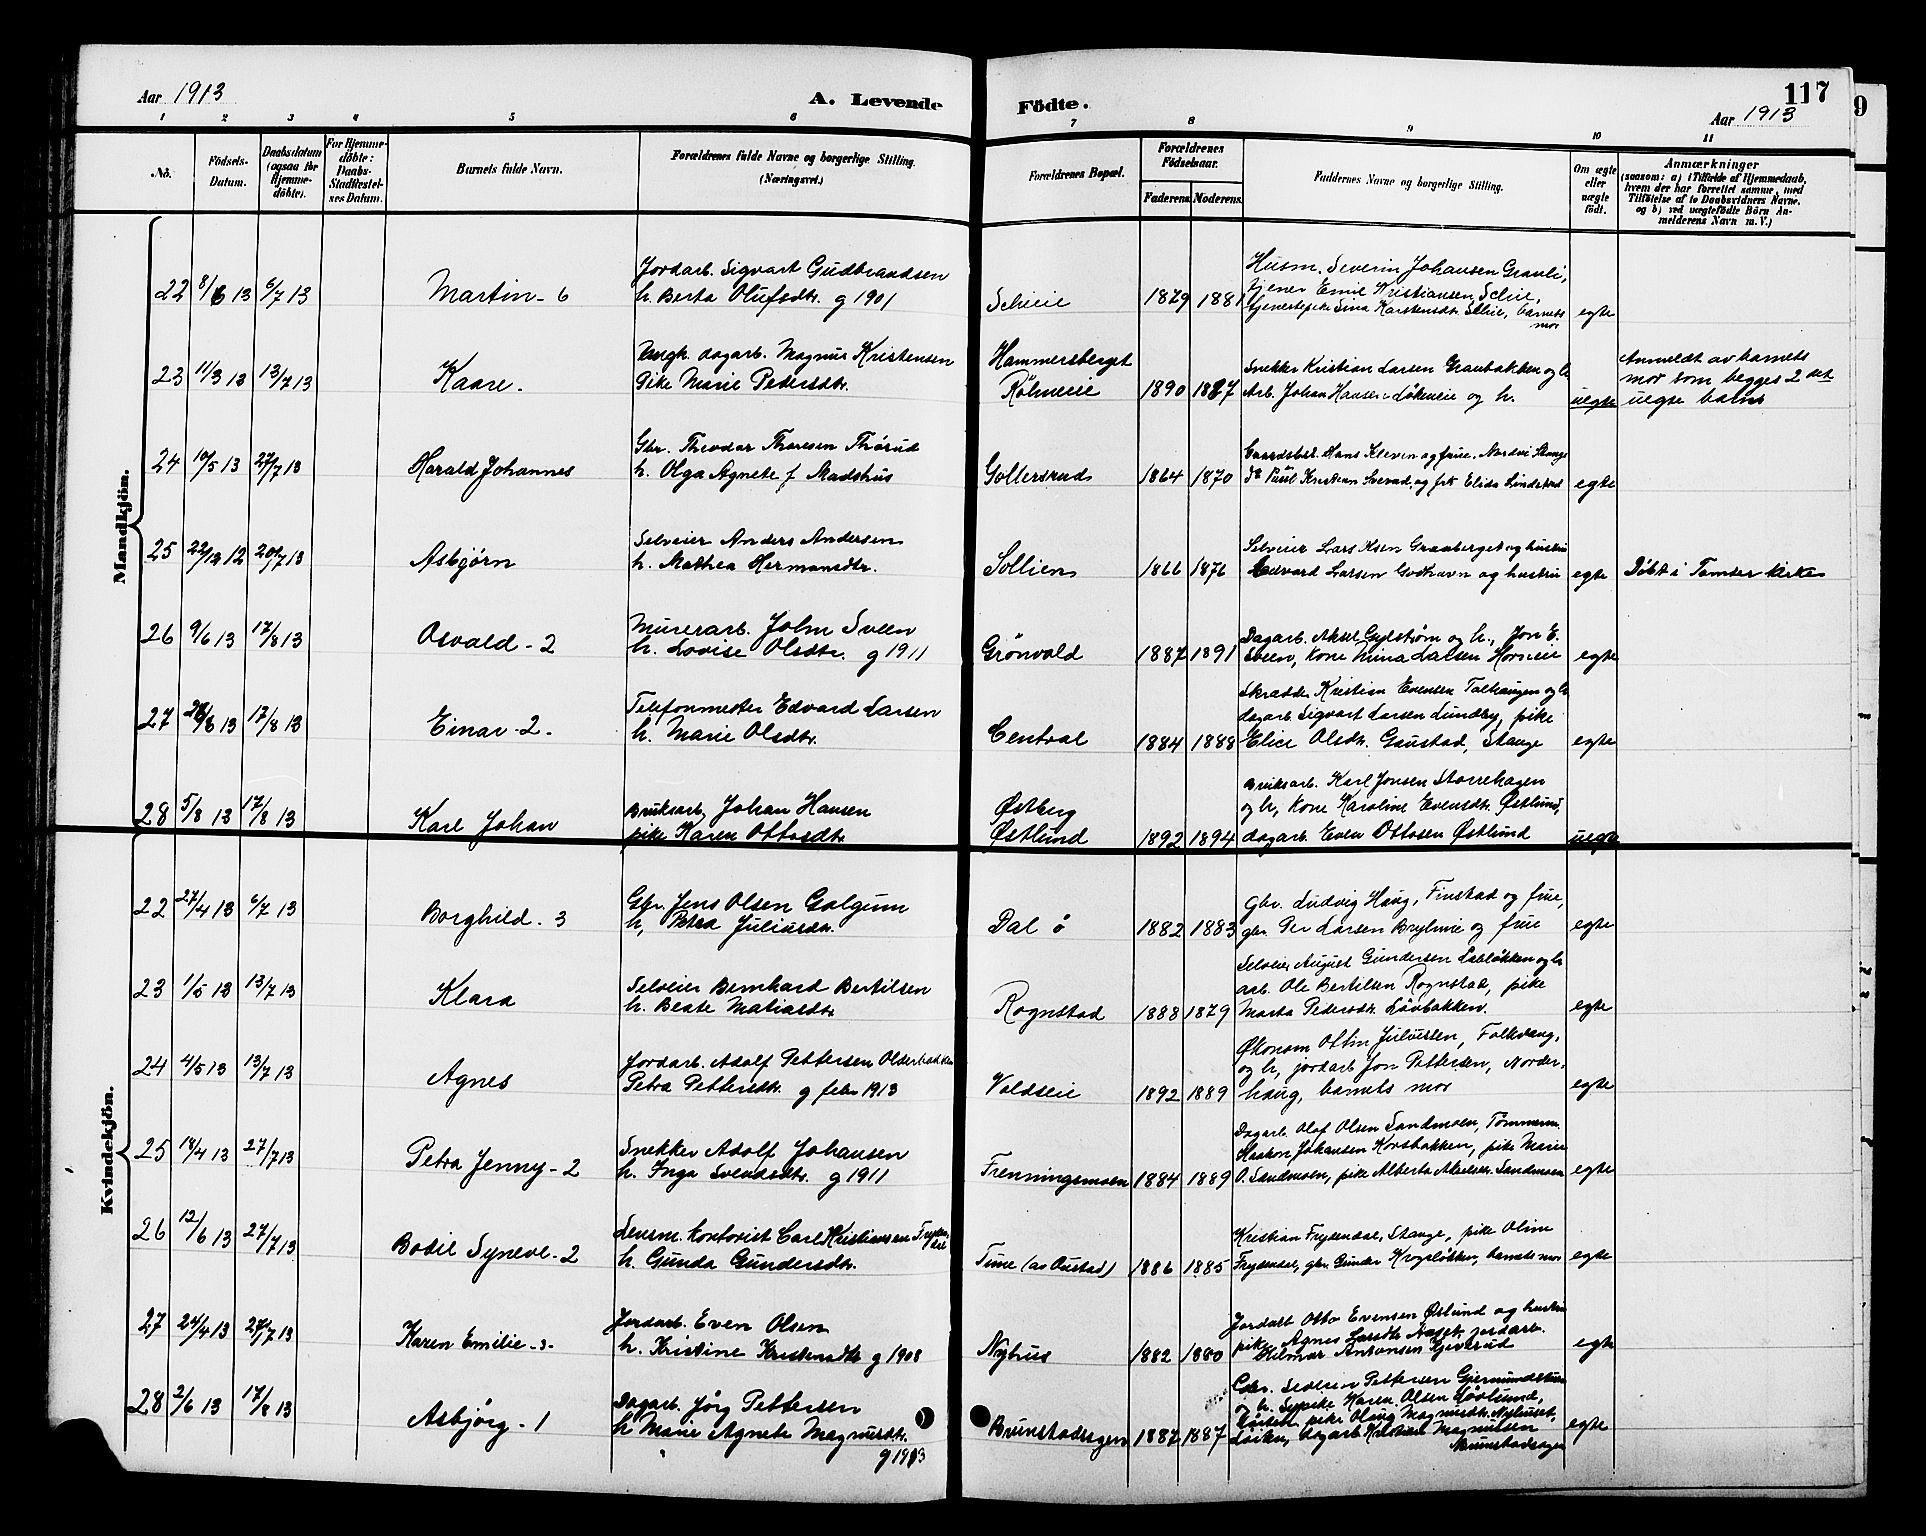 Aar 1913
A. Levende Födte.
117
Aar 1913
1 2 3 4 5 6 7 8 9 10 11
No.
Födsels-
Datum.
Daabsdatum
(ogsaa for
Hjemme-
döbte).
For Hjemme-
döbte:
Daabs-
Stadfæstel-
ses Datum.
Barnets fulde Navn.
Forældrenes fulde Navne og borgerlige Stilling.
(Næringsvei.)
Forældrenes Bopæl.
Forældrenes
Födselsaar.
Faderens. Moderens.
Faddernes Navne og borgerlige Stilling.
Om ægte
eller
uægte
födt.
Anmærkninger
(saasom: a) i Tilfælde af Hjemmedaab,
hvem der har forrettet samme, med
Tilföielse af to Daabsvidners Navne,
og b) ved uægtefödte Börn An-
melderens Navn m. V.)
Mandkjön.
22 8/6 13 6/7 13 Martin - 6
Jordarb. Sigvart Gudbrandsen
h. Berta Olufsdtr. g 1901
1879 1881
Husm. Severin Johansen Gravli,
tjener Emil Kristiansen
tjenestepike Sina Karstensdtr. barnets
mor
egte
23 11/3 13 13/7 13 Kaare.
Ungk. dagarb. Magnus Kristensen
Pike Marie Pedersdtr.
Hammersberget
1890 1887
Snekker Kristian Larsen Graubakken og h.
Arb. Johan Hansen og h.
uegte
Anmeldt av barnets
mor som begges 2det
uegte barn
24 10/5 13 27/7 13 Harald Johannes
Gbr. Theodor Thoresen Thørud
h. Olga Agnete f. Madshus
Gollersrud
1864 1870
Gaardsbest. Hans Kleven og frue, Nordvi Stange
Paul Kristian og frk Elida Lindstad
egte
25 22/12 12 20/7 13 Asbjørn
Selveier Anders Andersen
h. Mathea Hermansdtr.
Sollien
1866 1876
Selveier Lars Graaberget og hustru
Edvard Larsen Godhavn og hustru
egte
Døbt i Tomter kirke
26 9/6 13 17/8 13 Osvald - 2
Murerarb. John Sveen
h. Lovise Olsdtr. g 1911
Grönvold
1887 1891
Dagarb. Aksel Gylstrøm og h., Jon E.
Sveen, kone Mina Larsen Horneie
egte
27 17/8 13 Einar - 2.
Telefonmester Edvard Larsen
h. Marie Olsdtr.
Central
1884 1888
Skrædder Kristian Evensen og h
dagarb. Sigvart Larsen Lundby, pike
Elise Olsdtr. Gaustad, Stange
egte
28 5/8 13 17/8 13 Karl Johan
Bruksarb. Johan Hansen
pike Karen Ottosdtr.
Østberg
Østlund
1892 1894
Bruksarb. Karl Jonsen Storrehagen
og h, kone Karoline Evensdtr. Østlund,
dagarb. Even Ottosen Østlund
uegte
Kvindekjön.
22 27/4 13 6/7 13 Borghild - 3
Gbr. Jens Olsen Galgum
h, Petra Juliusdtr.
Dal ø
1882 1883
Gbr. Ludvig Haug, Finstad og frue,
gbr. Per Larsen og frue
egte
23 1/5 13 13/7 13 Klara
Selveier Bernhard Bertilsen
h. Beate Matiasdtr
Rognstad
1888 1879
Selveier August Gundersen og h
arb. Ole Bertilsen Rognstad, pike
Marta Pedersdtr. Løvbakken.
egte
24 4/5 13 13/7 13 Agnes
Jordarb. Adolf Pettersen Olderbakken
Petra Pettersdtr. g febr 1913
Voldseie
1892 1889
Økonom Ottin Juliussen, Folkvang,
og h, jordarb Jon Pettersen, Norder-
haug, barnets mor
egte
25 18/4 13 27/7 13 Petra Jenny - 2
Snekker Adolf Johansen
h. Inga Svendsdtr. g 1911
Frenningsmoen
1884 1889
Dagarb. Olof Olsen Sandmoen, Tømmerm.
Haakon Johansen Korsbakken, pike Marie
O. Sandmoen, pike Alberta Akselsdtr. Sandmoen
egte
26 12/6 13 27/7 13 Bodil Syneve - 2
kontorist Carl Kristiansen Frydendal
h. Gunda Gundersdtr.
Tune (av Oustad)
1886 1885
Kristian Frydendal, Stange, pike Oline
Frydendal, gbr. Gunder Krogsløkken, barnets mor
egte
27 24/4 13 27/7 13 Karen Emilie - 3-
Jordarb. Even Olsen
h. Kristine Kristensdtr g 1908
Nyhus
1882 1880
Jordarb Otto Evensen Østlund og hustru
pike Agnes Larsdtr. jordarb.
Hilmar Antonsen
egte
28 2/6 13 17/8 13 Asbjørg - 1
Dagarb. Jørg Pettersen
h Marie Agnete Magnusdtr.
g 1913
Brunstadsagen
1887 1887
Pettersen
og h. pike Karen Olsen Løvlund,
pike Olaug Magnusdtr. Nyhuset,
dagarb Kristian Magnussen
Brunstadsagen
egte